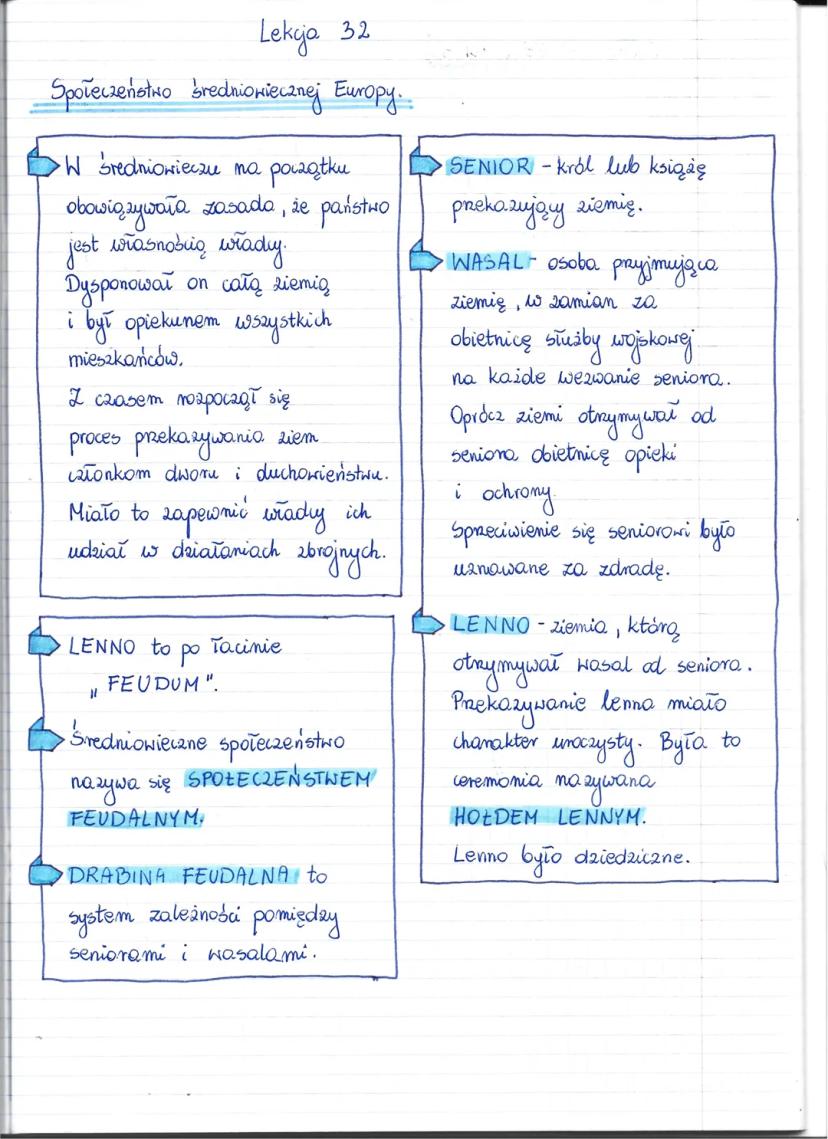 Lekcja 32
Społeczeństwo średniowiecznej Europy.
W średniowieczu na początku
obowiązywała zasada, że państwo
jest własnością władcy.
Dysponował on całą ziemią
i był opiekunem wszystkich
mieszkańców.
Z czasem rozpoczął się
proces przekazywania ziem
członkom dworu i duchowieństwu.
Miało to zapewnić władcy ich
udział w działaniach zbrojnych.
LENNO to po łacinie
„FEUDUM".
Średniowieczne społeczeństwo
nazywa się SPOŁECZEŃSTWEM
FEUDALNYM.
DRABINA FEUDALNA to
system zależności pomiędzy
seniorami i wasalami.
SENIOR - król lub książę
przekazujący ziemię.
WASAL - osoba przyjmująca
ziemię, w zamian za
obietnicę służby wojskowej
na każde wezwanie seniora.
Oprócz ziemi otrzymywał od
seniora obietnicę opieki
i ochrony.
Sprzeciwienie się seniorowi było
uznawane za zdradę.
LENNO - ziemia, którą
otrzymywał wasal od seniora.
Przekazywanie lenna miało
charakter uroczysty. Była to
ceremonia nazywana
HOŁDEM LENNYM.
Lenno było dziedziczne.